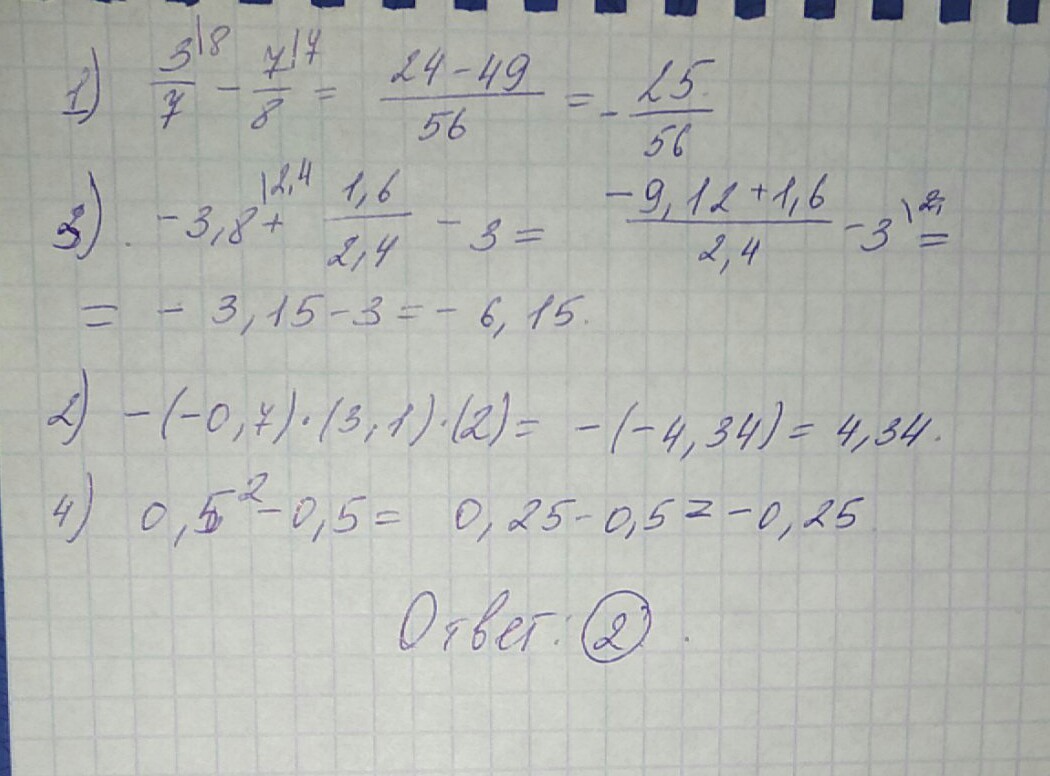 1) 3\8/7 - 7\7/8 = (24-49)/56 = -25/56
3) -3,8\2,4 + 1,6/2,4 - 3 = (-9,12+1,6)/2,4 - 3\2, =
= - 3,15-3 = - 6,15.
2) -(-0,7)·(3,1)·(2) = -(-4,34) = 4,34.
4) 0,5² - 0,5 = 0,25-0,5 = -0,25
Ответ: 2.